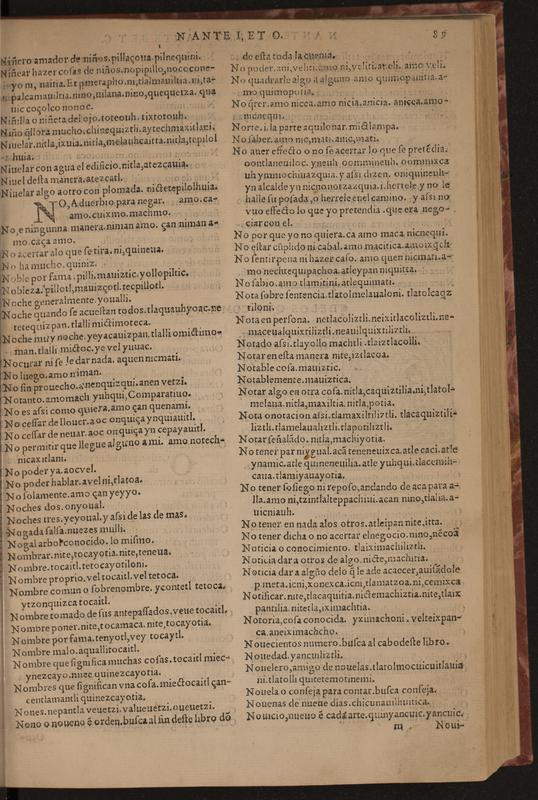 N ANTE I, ET O.
89
Niñero amador de niños. pillaçoua. pilnequini.
Niñear hazer cosas de niños. nopipillo, nococone-
yo
Niñilla o niñeta del ojo. toteouh. tixtotouh.
Niuel desta manera. atezcatl.
Niuelar algo a otro con plomada. nictetepilolhuia.
NO, Aduerbio para negar. amo. ca-
amo. cuixmo. machmo.
No, e ningunna manera. niman amo. çan niman a-
mo. caça amo.
No acertar alo que se tira. ni, quineua.
No ha mucho. quiniz.
Noble por fama. pilli. mauiztic. yollopiltic.
Nobleza. pillotl, mauizçotl. tecpillotl.
Noche generalmente. youalli.
Noche quando se acuestan todos. tlaquauhyoac. ne
tetequizpan. tlalli mictimoteca.
Noche muy noche. yeyacauizpan. tlalli omictimo-
man. tlalli mictoc. ye vel yuuac.
No curar ni se le dar nada. aquen nicmati.
No luego. amo niman.
No sin prouecho. anenquizqui. anen vetzi.
Notanto. amomach yuhqui, Comparatiuo.
No es assi como quiera. amo çan quenami.
No cessar de llouer. aoc onquiça ynquiauitl.
No cessar de neuar. aoc onquiça yn cepayauitl.
No permitir que llegue alguno a mi. amo notech-
nicaxitlani.
No poder ya. aocvel.
No poder hablar. avel ni, tlatoa.
No solamente. amo çan yeyyo.
Noches dos. onyoual.
Noches tres. yeyoual. y assi de las de mas.
Nogada salsa. nuezes mulli.
Nogal arbol conocido. lo mismo.
Nombrar. nite, tocayotia. nite, teneua.
Nombre. tocaitl. tetocayotiloni.
Nombre proprio. vel tocaitl. vel tetoca.
Nombre comun o sobrenombre. ycontetl tetoca.
ytzonquizca tocaitl.
Nombre tomado de sus antepassados. veue tocaitl.
Nombre poner. nite, tocamaca. nite, tocayotia.
Nombre por fama. tenyotl, vey tocaytl.
Nombre malo. aquallitocaitl.
Nombre que significa muchas cosas. tocaitl miec-
ynezcayo. miec quinezcayotia.
Nombres que significan vna cosa. miectocaitl çan-
centlamantli quinezcayotia.
Nones. nepantla veuetzi. valueuetzi. oueuetzi.
Nono o noueno ẽ orden. busca al fin deste libro dõ
de esta toda la cuenta.
No poder. ani, veliti. amo ni, veliti. at eli. amo veli.
No quadrarle algo a alguno. amo quimopanitia. a-
mo quimopotia.
No q̃rer. amo nicea. amo nicia. anicia. anicea. amo-
nicnequi.
Norte. i. la parte aquilonar. mictlampa.
No saber. amo nic, mati. anic, mati.
No auer effecto o no se acertar lo que se pretẽdia.
halle su posada, o herrele en el camino. y assi no
vuo effecto lo que yo pretendia. que era nego-
ciar con el.
No por que yo no quiera. ca amo maca nicnequi.
No sentir pena ni hazer caso. amo quen nicmati. a-
mo nechtequipachoa. atleypan niquitta.
No sabio. amo tlamitini. atlequimati.
Nota sobre sentencia. tlatolmelaualoni. tlatolcaqz
tiloni.
Nota en persona. netlacoliztli. neixitlacoliztli. ne-
maceualquixtiliztli. neauilquixtiliztli.
Notado assi. tlayollo machtli. tlaiztlacolli.
Notar en esta manera nite, iztlacoa.
Notable cosa. mauiztic.
Notablemente. mauiztica.
Notar algo en otra cosa. nitla, caquiztilia. ni, tlatol-
melaua. nitla, maxiltia. nitla, potia.
Nota o notacion assi. tlamaxiltiliztli. tlacaquiztili-
liztli. tlamelaualiztli. tlapotiliztli.
Notar señalãdo. nitla, machiyotia.
ynamic. atle quineneuilia. atle yuhqui. tlacemih-
caua. tlamiyauayotia.
No tener sosiego ni reposo, andando de aca para a-
lla. amo ni, tzintlalteppachiui. acan nino, tlalia. a-
uicniauh.
No tener en nada alos otros. atleipan nite, itta.
Noticia o conocimiento. tlaiximachiliztli.
Noticia dar a otros de algo. nicte, machitia.
Noticia dar a algũo delo q̃ le ade acaecer, auisãdole
Notificar. nite, tlacaquitia. nictemachiztia. nite, tlaix
pantilia. nitetla, iximachtia.
Notoria, cosa conocida. yximachoni. velteixpan-
ca. aneiximachcho.
Nouecientos numero. busca al cabo deste libro.
Nouedad. yancuiliztli.
Nouelero, amigo de nouelas. tlatolmocuicuitlauia
ni. tlatolli quitetemotinemi.
Nouela o conseja para contar. busca conseja.
Nouenas de nueue dias. chicunauilhuitica.
Nouicio, nueuo ẽ cada arte. quinyancuic. yancuic.
m Noui-